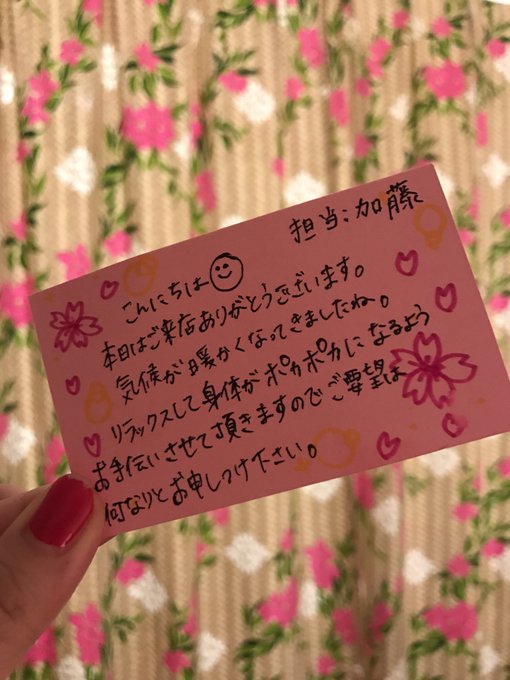 担当:加藤
こんにちは
本日はご来店ありがとうございます。
気候が暖かくなってきましたね。
リラックスして身体がポカポカになるよう
お手伝いさせて頂きますのでご要望は
何なりとお申しつけ下さい。